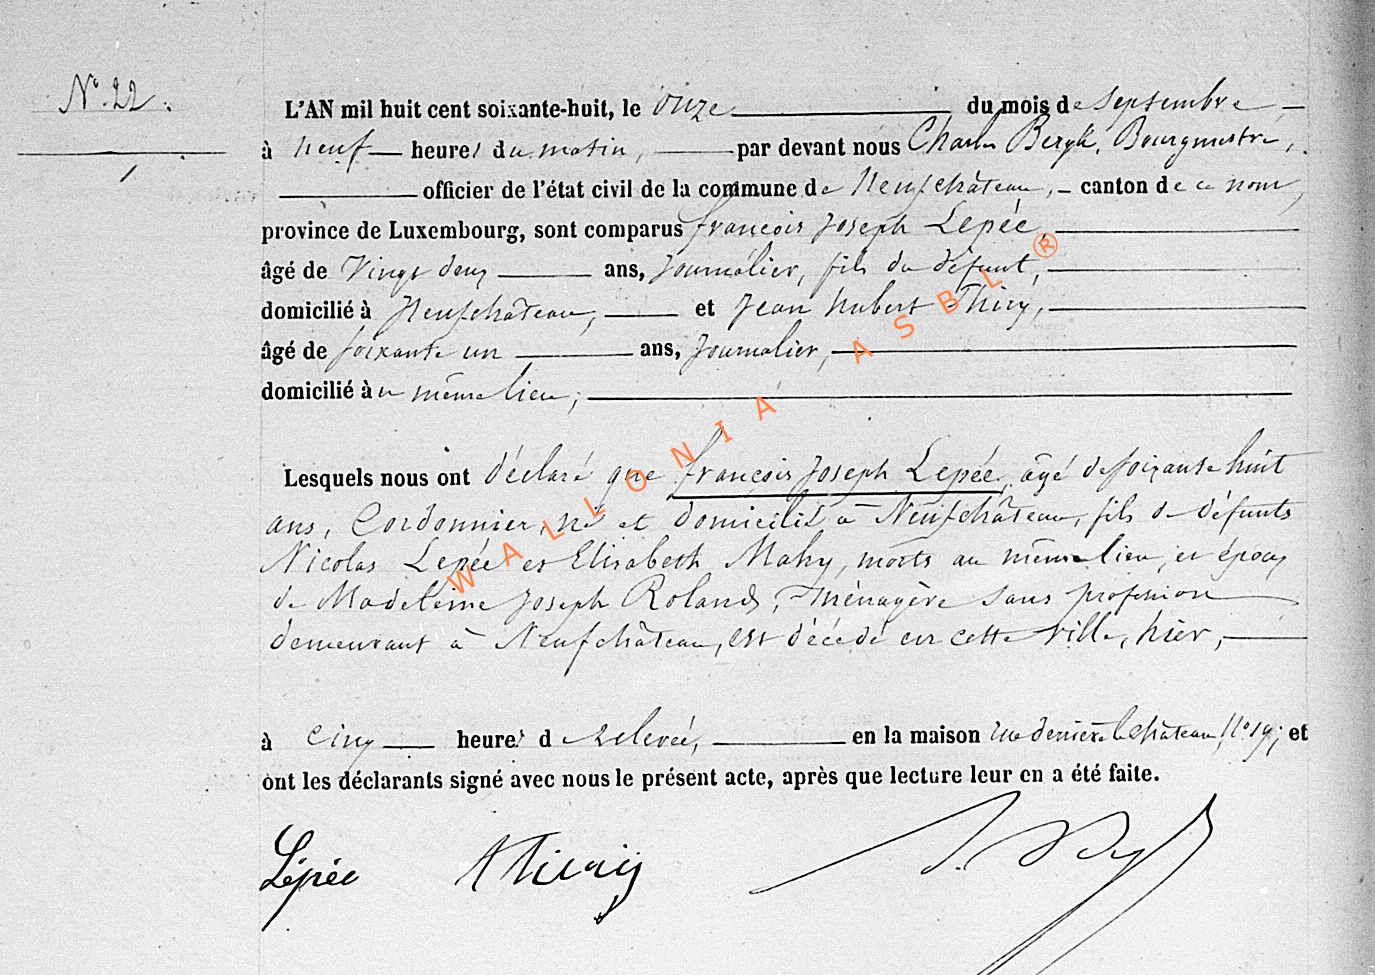 N° 22.
L'AN mil huit cent soixante-huit, le onze du mois de septembre
à neuf heures du matin, par devant nous Charles Bergh, Bourgmestre,
officier de l'état civil de la commune de Neufchâteau, canton de ce nom,
province de Luxembourg, sont comparus françois joseph Lepée,
âgé de Vingt deux ans, journalier, fils du défunt,
domicilié à Neufchâteau, et jean hubert Thiry,
âgé de soixante un ans, journalier,
domicilié au même lieu;
Lesquels nous ont déclaré que françois joseph Lepée, âgé de soixante huit
ans, Cordonnier, né et domicilié à Neufchâteau, fils de défunts
Nicolas Lepée et Elisabeth Mahy, morts au même lieu, et époux
de Madeleine joseph Roland, ménagère sans profession
demeurant à Neufchâteau, est décédé en cette ville, hier,
à cinq heures de relevée, en la maison rue derrière le château, N° 19; et
ont les déclarants signé avec nous le présent acte, après que lecture leur en a été faite.
Lépée
WALLONIA ASBL ®